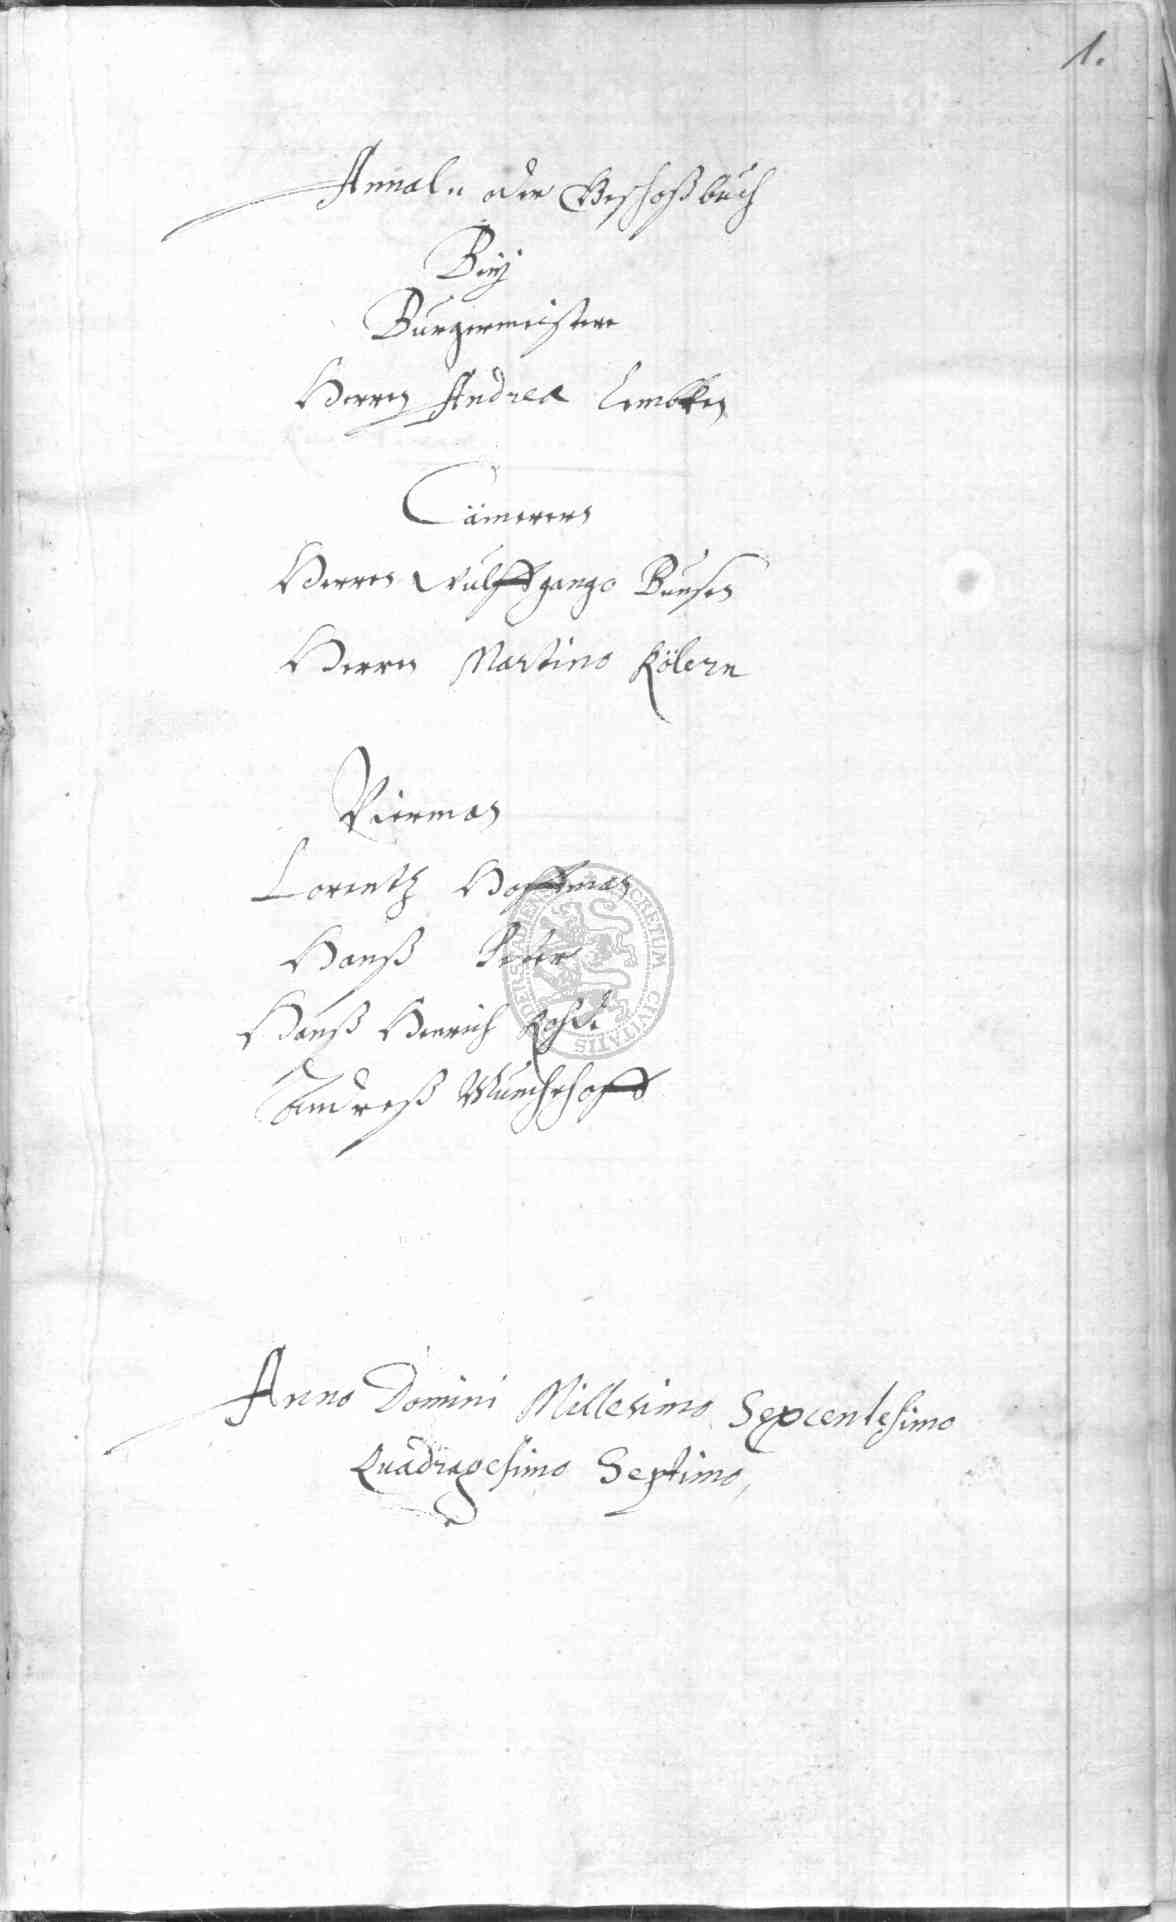 1.
Annal. oder Geschoßbuch
Beij
Burgermeistere
Herren Andrea Lembken
Cämerern
Herren Wulffgango Bunsen
Herren Martino Kölern
Vierman
Lorentz Hoffman
Hanß Peter
Hanß Henrich Kohl.
Andreß Munchehoff
SECRETUM CIVITATIS
Anno Domini Millesimo Sexcentesimo
Quadragesimo Septimo,